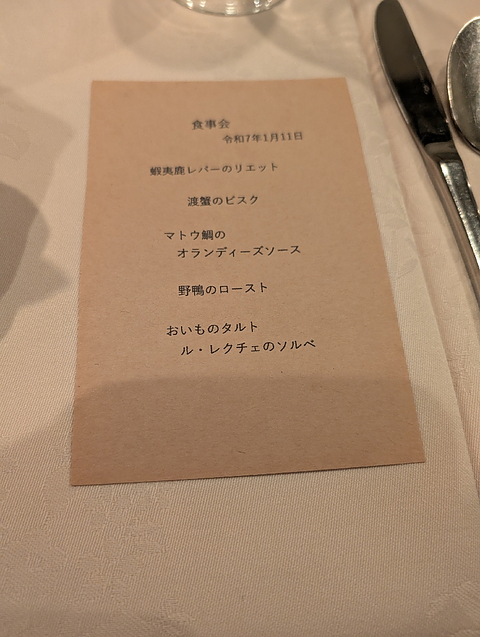 食事会
令和7年1月11日
蝦夷鹿レバーのリエット
渡蟹のビスク
マトウ鯛の
オランディーズソース
野鴨のロースト
おいものタルト
ル・レクチェのソルベ